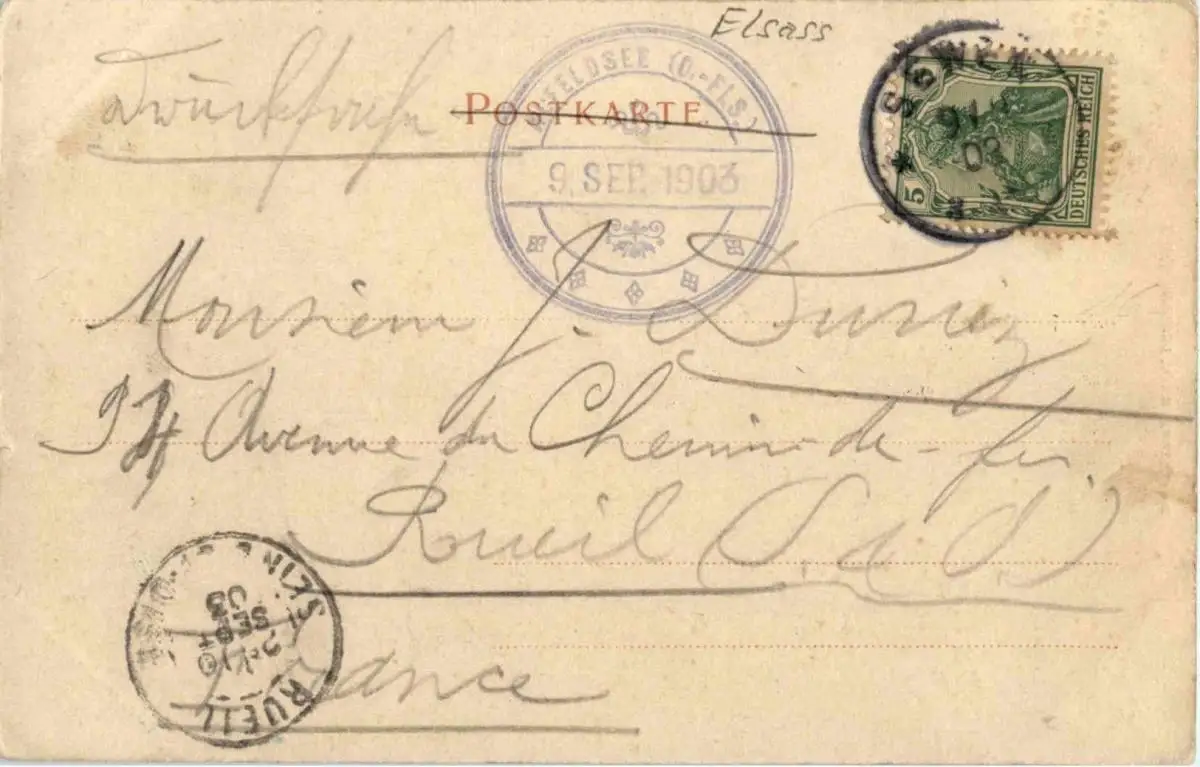 Elsass
Drucksache
POSTKARTE
FELDSEE (O.-ELS.)
9. SEP. 1903
5
DEUTSCHES REICH
Monsieur J.
Avenue du Chemin de fer
Rueil (S. & O.)
France
RUEIL
SEPT
03